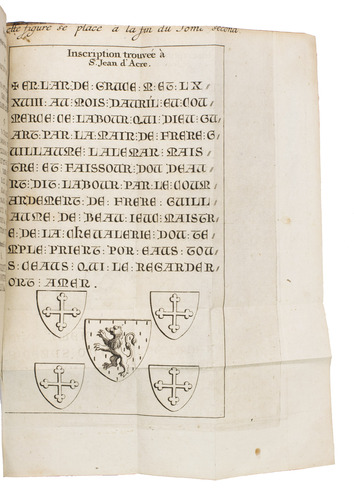 cette figure se place a la fin du Tome second
Inscription trouvée à
S. Jean d'Acre.
✠ EN:LAR:DE:GRACE:M:ET:LX/
XVIII:AU:MOIS:DAURIL:EU:COU/
MERCE:CE:LABOUR:QUI:DIEU:G/
ART:PAR:LA:MAIN:DE:FRERE:G/
UILLAUME:LALEMAR:MAIS/
TRE:ET:FAISSOUR:DOU:DEAU/
RT:DIT:LABOUR:PAR:LE:COUM/
ARDEMENT:DE:FRERE:GUILL/
AUME:DE:BEAU:IEUC:MAISTR/
E:DE:LA:CHEVALERIE:DOU:TE/
MPLE:PRIERT:POR:EAUS:TOU/
S:CEAUS:QUI:LE:REGARDER/
ORT:AMEN.